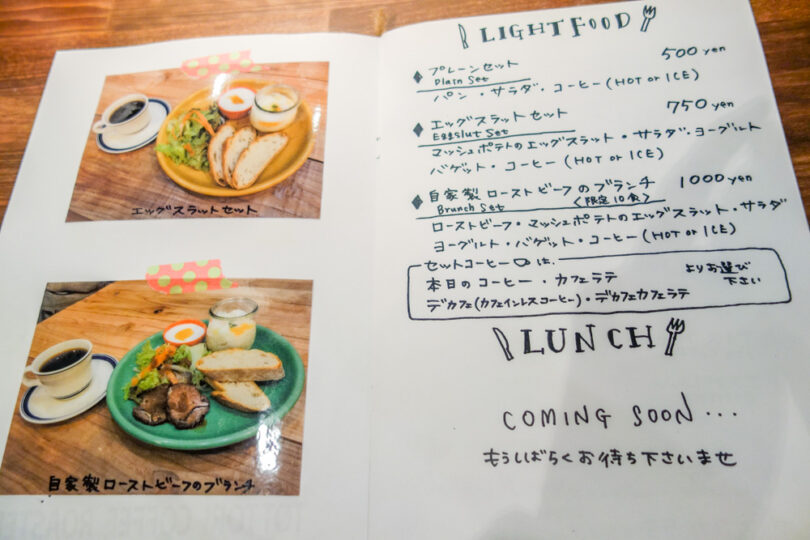 エッグスラットセット
自家製ローストビーフのブランチ
LIGHT FOOD
プレーンセット 500 yen
Plain Set
パン・サラダ・コーヒー(HOT or ICE)
エッグスラットセット 750 yen
Eggslut Set
マッシュポテトのエッグスラット・サラダ・ヨーグルト
バゲット・コーヒー(HOT or ICE)
自家製ローストビーフのブランチ 1000 yen
Brunch Set 〈限定10食〉
ローストビーフ・マッシュポテトのエッグスラット・サラダ
ヨーグルト・バゲット・コーヒー(HOT or ICE)
セットコーヒーは、
本日のコーヒー・カフェラテ よりお選び
デカフェ(カフェインレスコーヒー)・デカフェカフェラテ 下さい
LUNCH
COMING SOON...
もうしばらくお待ち下さいませ